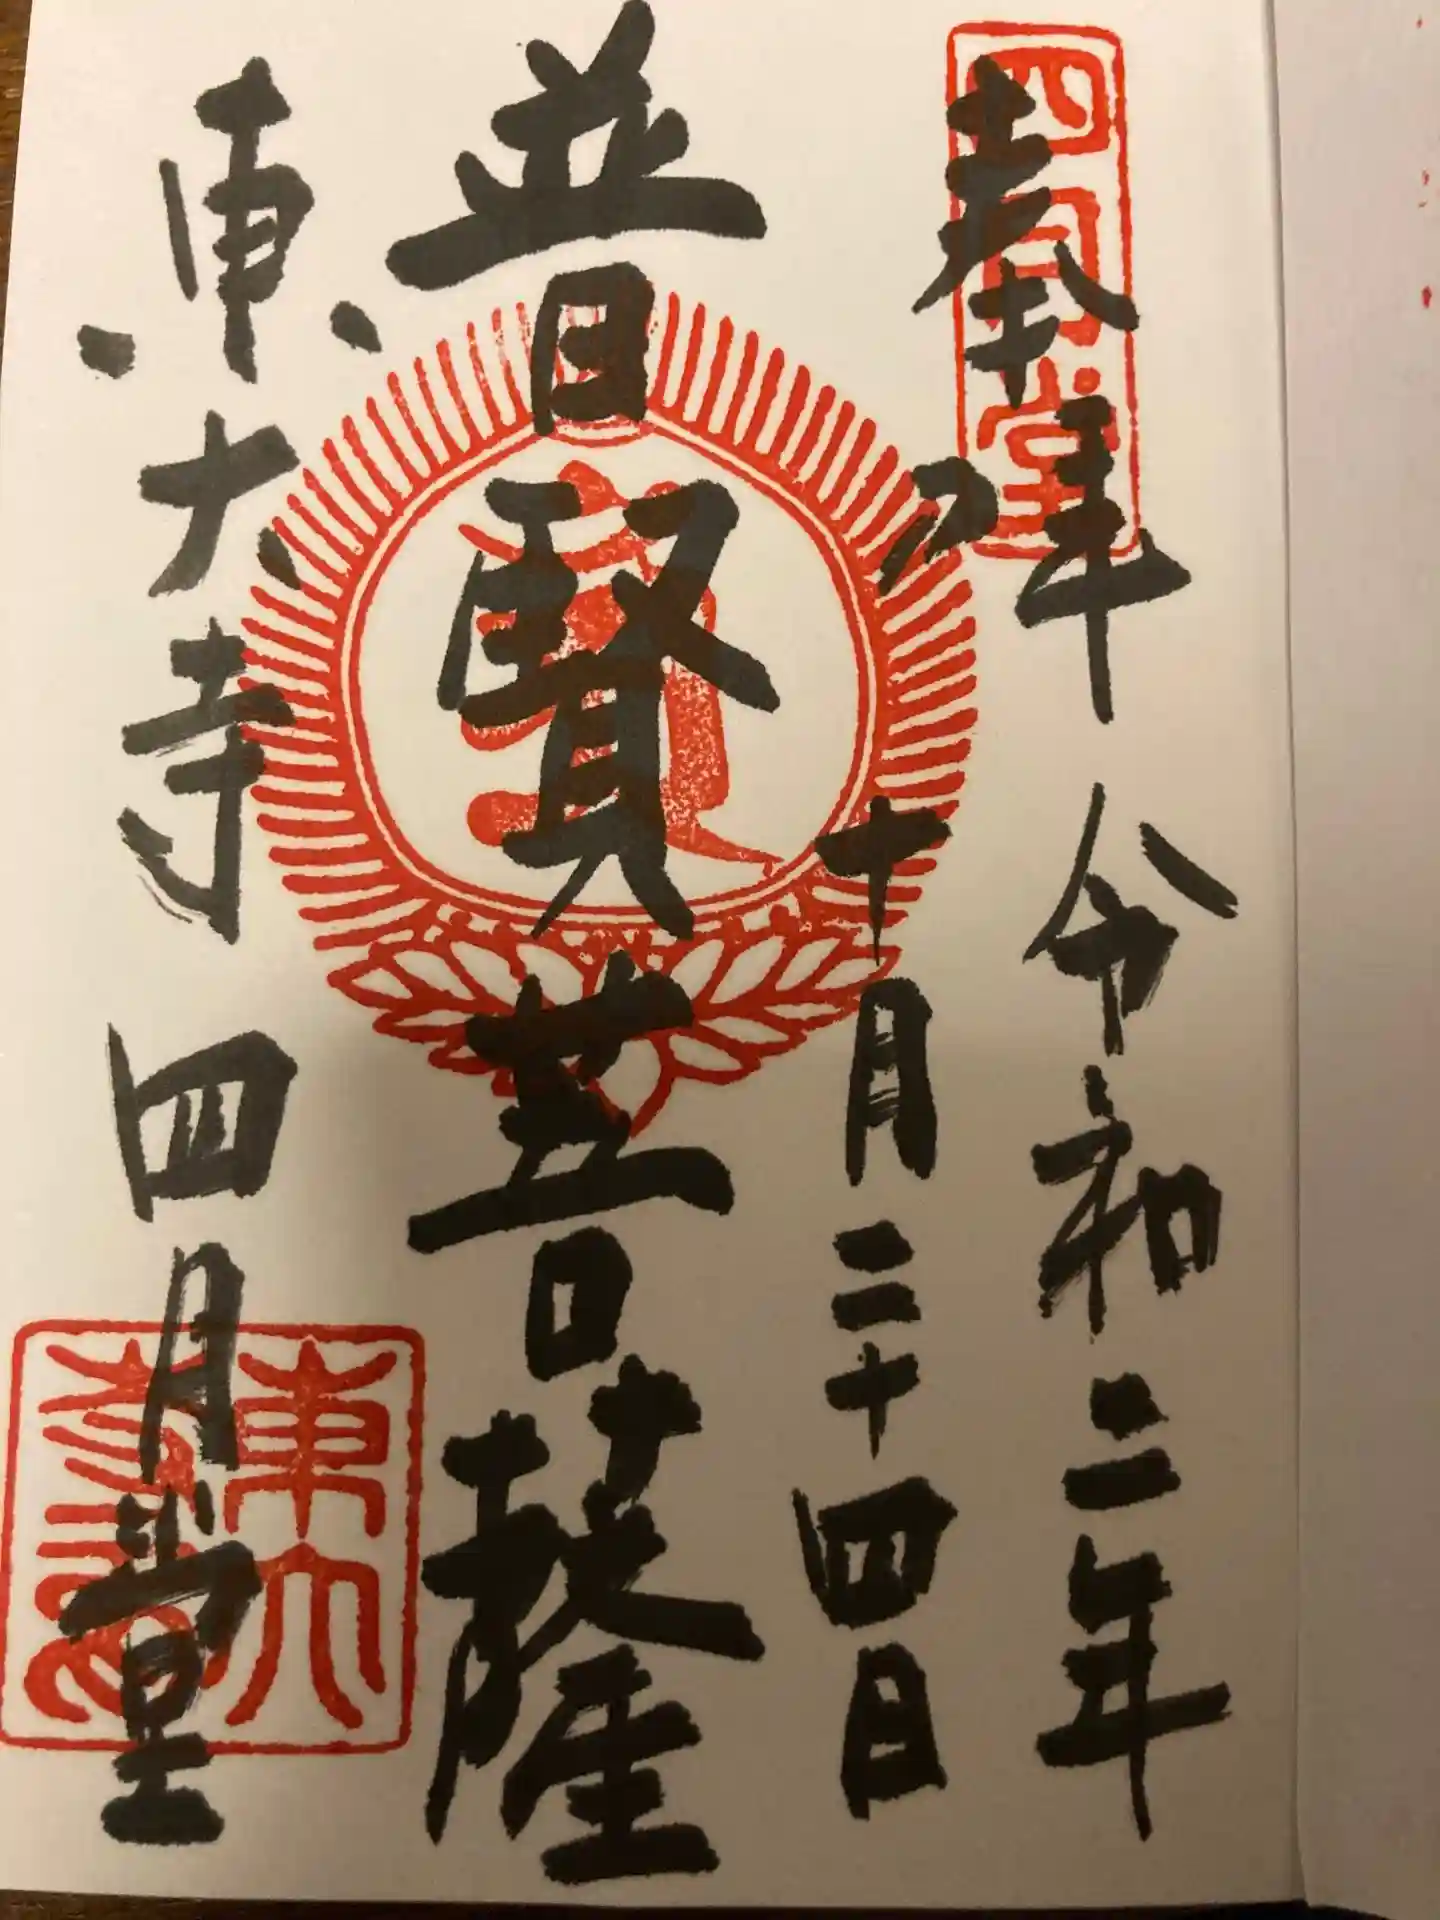 奉拝 令和二年
十月二十四日
普賢菩薩
東大寺 四月堂
四月堂
東大